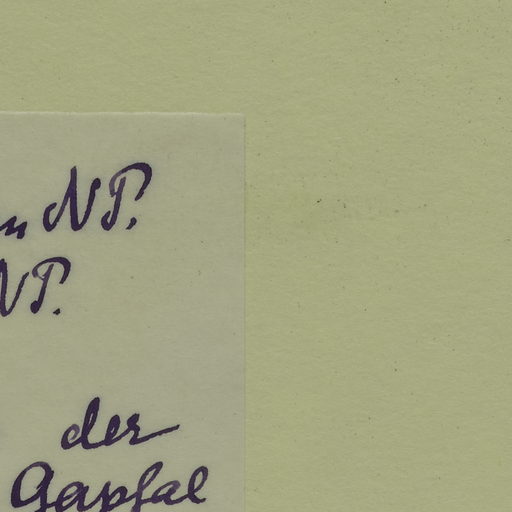 n NP.
NP.
der
Gapfal